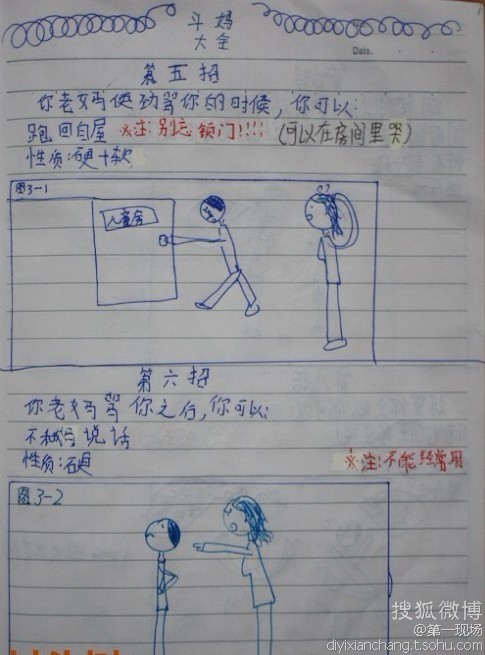 斗妈
大全
Date.
第五招
你老妈使劲骂你的时候，你可以：
跑回自屋 ※注：别忘锁门!!!! (可以在房间里哭)
性质：硬+软
图3-1
儿童房
第六招
你老妈骂你之后，你可以：
不和她说话
性质：硬 ※注：不能经常用
图3-2
搜狐微博
@第一现场
diyixianchang.t.sohu.com